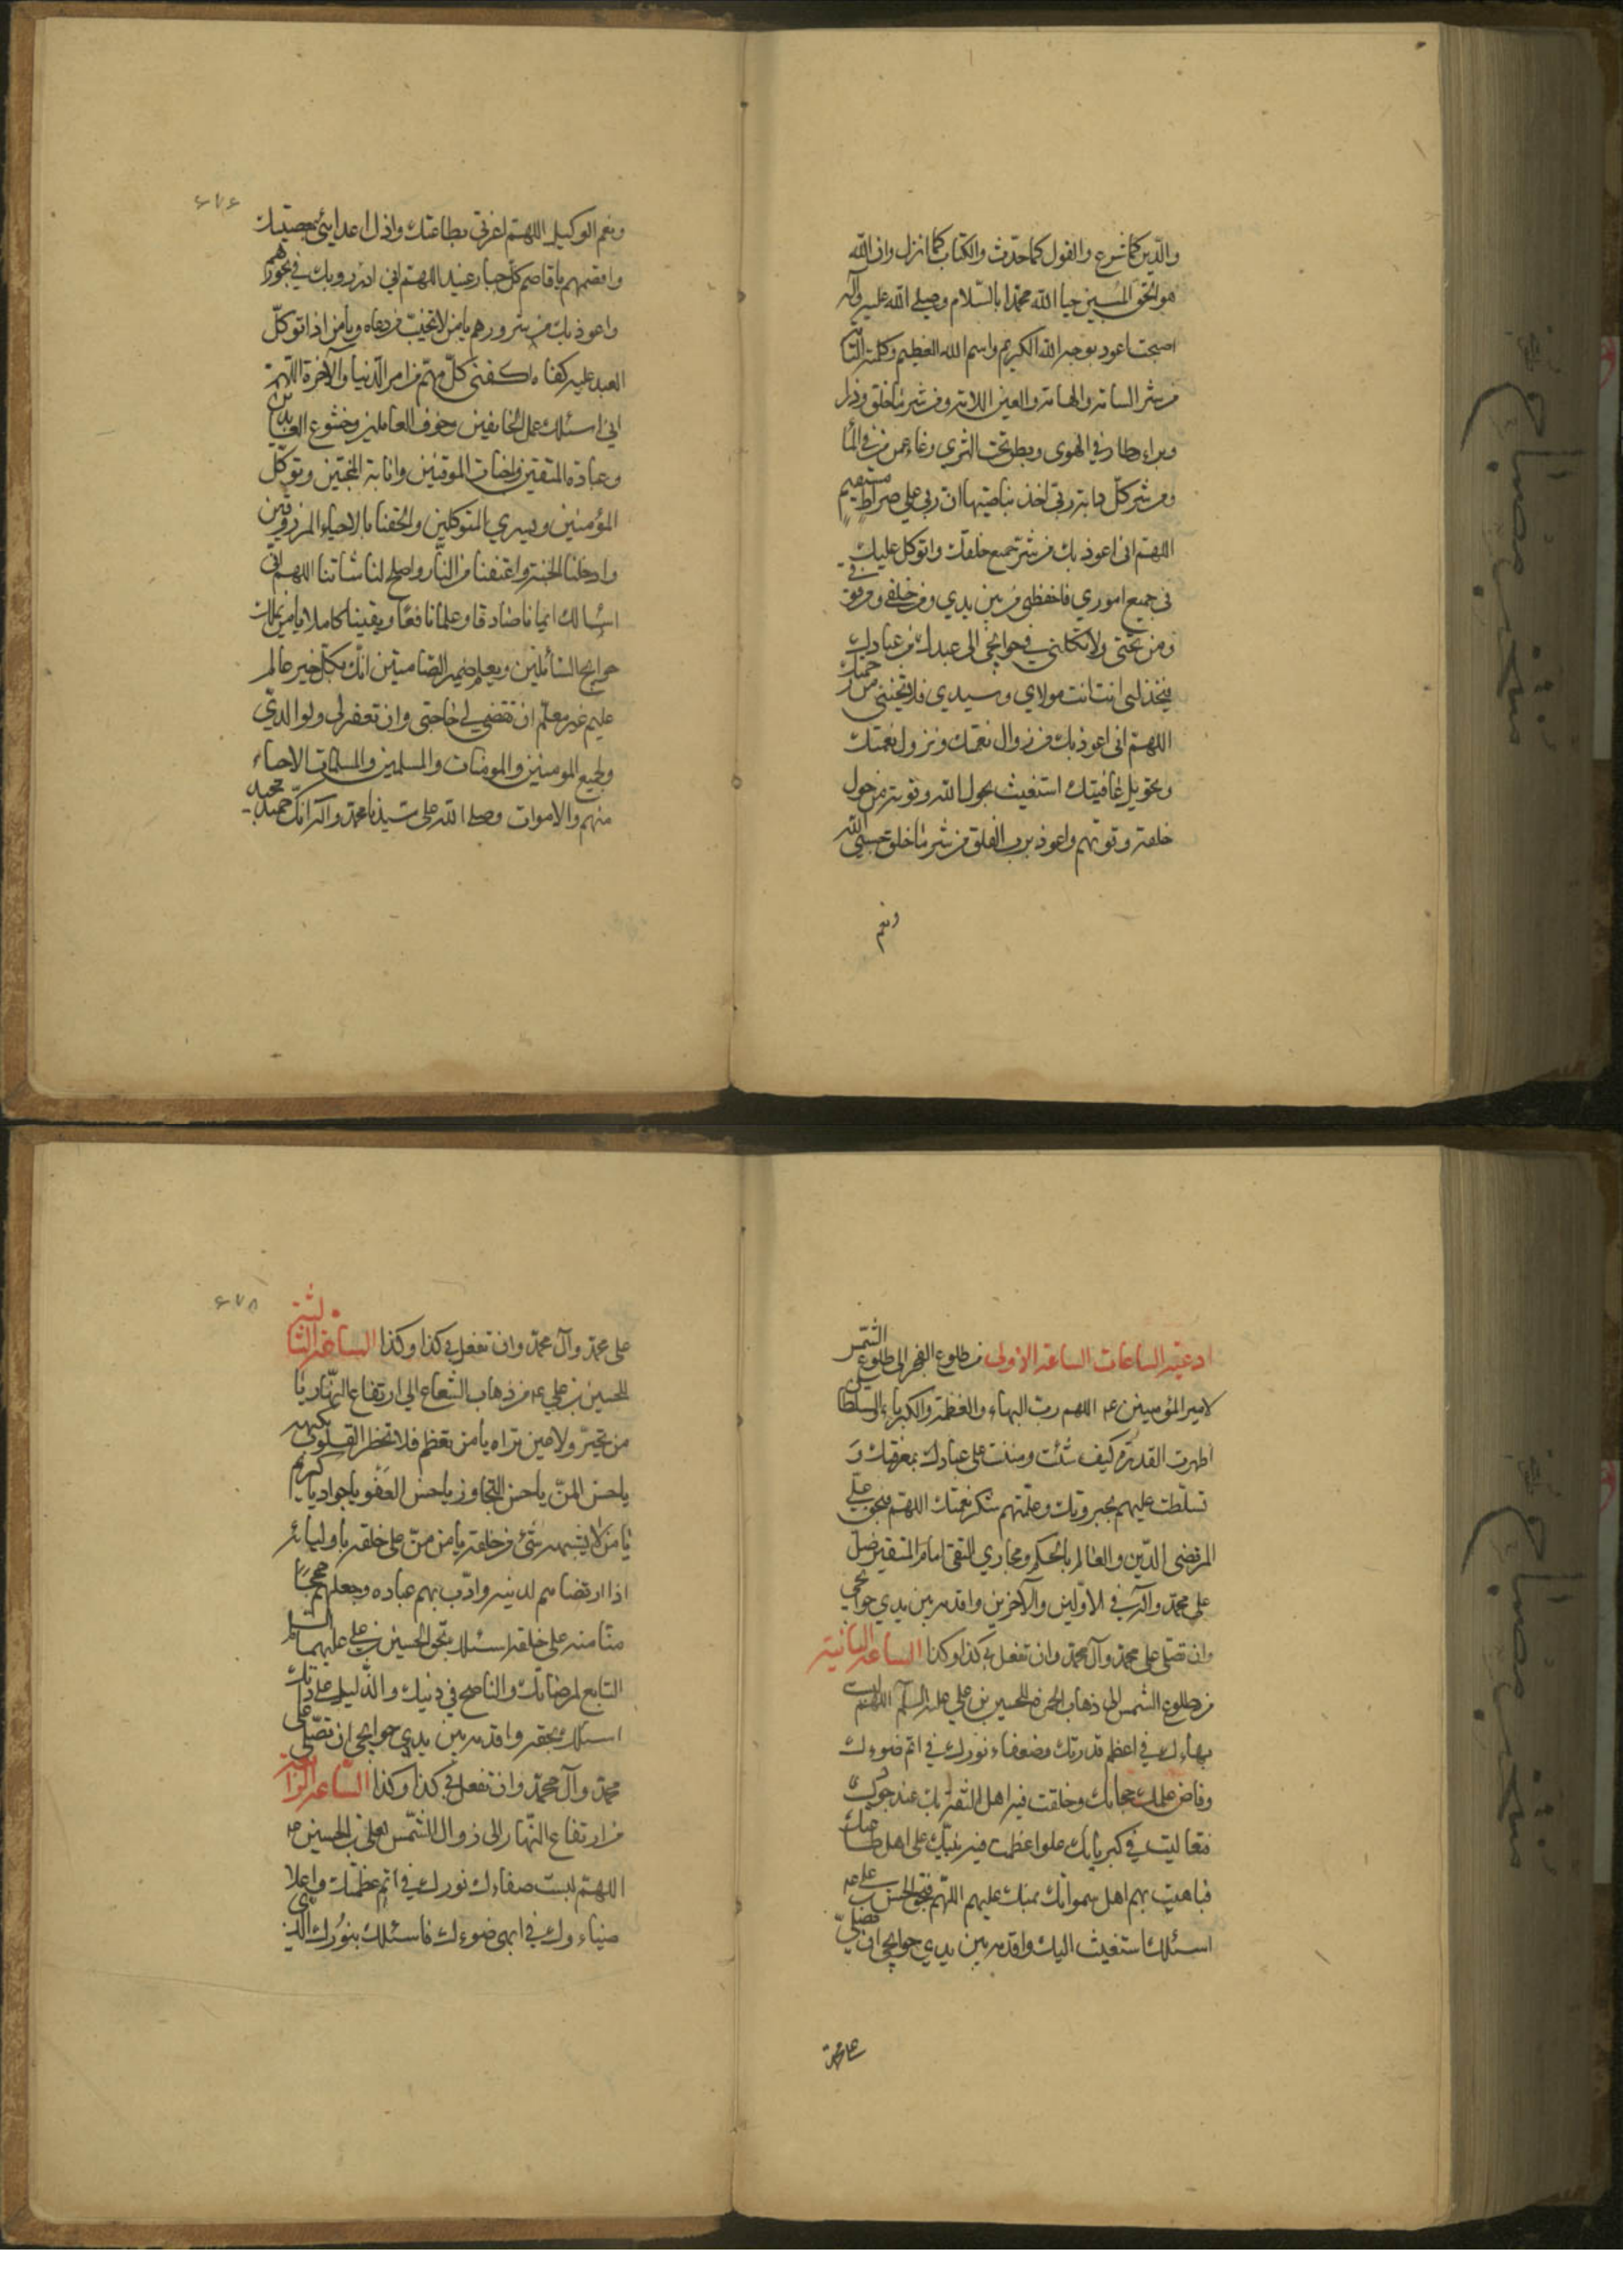 والدين كما شرع والقول كما حدث والكتاب كما انزل وان الله
هو الحق المبين حيا الله محمدا بالسلام وصلى الله عليه وآله
اصبحت اعوذ بوجه الله الكريم واسم الله العظيم وكلمته التامة
من شر السامة والهامة والعين اللامة ومن شر ما خلق وذرا
وبراء وطار في الهوى وبطن تحت الثرى
ومن شر كل دابة ربي اخذ بناصيتها ان ربي على صراط مستقيم
اللهم انى اعوذ بك من شر جميع خلقك واتوكل عليك
فى جميع اموري فاحفظنى من بين يدي ومن خلفى ومن فوقي
ومن تحتى ولا تكلني في حوايجى الى عبد من عبادك
فيخذلنى انت مولاي وسيدي فلا تخيبنى من رحمتك
اللهم انى اعوذ بك من زوال نعمتك ونزول نقمتك
وتحويل عافيتك استغيث بحول الله وقوته من حول
خلقه وقوتهم واعوذ برب الفلق من شر ما خلق حسبى الله
ونعم
٤٧٤
ونعم الوكيل اللهم اعزني بطاعتك واذل اعدائى بمعصيتك
واقصمهم يا قاصم كل جبار عنيد اللهم اني ادرء بك في نحورهم
واعوذ بك من شرورهم يا من لا يخيب من دعاه ويا من اذا توكل
العبد عليه كفاه اكفنى كل مهم من امر الدنيا والآخرة اللهم
اني اسئلك عمل الخائفين وخوف العاملين وخشوع العابدين
وعبادة المتقين واخبات الموقنين وانابة المخبتين وتوكل
المؤمنين ويسرى المتوكلين والحقنا بالاحياء المرزوقين
وادخلنا الجنة واعتقنا من النار واصلح لنا شاننا اللهم انى
اسالك ايمانا صادقا وعلما نافعا ويقينا كاملا يا من يملك
حوايج السائلين ويعلم ضمير الصامتين انك بكل خير عالم
عليم غير معلم ان تقضي لي حاجتى وان تغفر لى ولوالدي
ولجميع المومنين والمومنات والمسلمين والمسلمات الاحياء
منهم والاموات وصلى الله على سيدنا محمد وآله انك حميد مجيد
ادعية الساعات الساعة الاولى من طلوع الفجر الى طلوع الشمس
لامير المؤمنين عـ اللهم رب البهاء والعظمة والكبرياء والسلطان
اظهرت القدرة كيف شئت ومننت على عبادك بمعرفتك و
تسلطت عليهم بجبروتك وعلمتهم شكر نعمتك اللهم فبحق علي
المرتضى للدين والعالم بالحكم ومجاري التقى امام المتقين صل
على محمد وآله في الاولين والآخرين واقدمه بين يدي حوايجي
وان تصلى على محمد وآل محمد وان تفعل بي كذا وكذا الساعة الثانية
من طلوع الشمس الى ذهاب الحمرة للحسن بن علي عليه السلم اللهم لبست
بهاءك في اعظم قدرتك وصفاء نورك في اتم ضوءك
وفاض علمك حجابك وخلقت فيه اهل الثقة بك عند جودك
فتعاليت في كبريائك علوا عظمت فيه منتك على اهل طاعتك
فباهيت بهم اهل سمواتك بمنتك عليهم اللهم فبحق الحسن بن علي عـ
اسئلك استغيث اليك واقدمه بين يدي حوايجي ان تصلي
على محمد
٤٧٥
على محمد وآل محمد وان تفعل بي كذا وكذا الساعة الثالثة
للحسين بن علي عـ من ذهاب الشعاع الى ارتفاع النهار يا
من تجبر ولا عين تراه يا من تعظم فلا تخطر القلوب بكنهه
يا حسن المن يا حسن التجاوز يا حسن العفو يا جواد يا كريم
يا من لا يشبهه شئ من خلقه يا من من على خلقه باوليائه
اذا ارتضاهم لدينه وادب بهم عباده وجعلهم حججا
منا منه على خلقه اسئلك بحق الحسين بن علي عليهما السلم
التابع لمرضاتك والناصح في دينك والدليل على ذاتك
اسئلك بحقه واقدمه بين يدي حوايجى ان تصلى على
محمد وآل محمد وان تفعل بي كذا وكذا الساعة الرابعة
من ارتفاع النهار الى زوال الشمس لعلي بن الحسين عـ
اللهم لبست صفاءك نورك في اتم عظمتك واعلا
ضياءك في ابهى ضوءك فاسئلك بنورك الذى